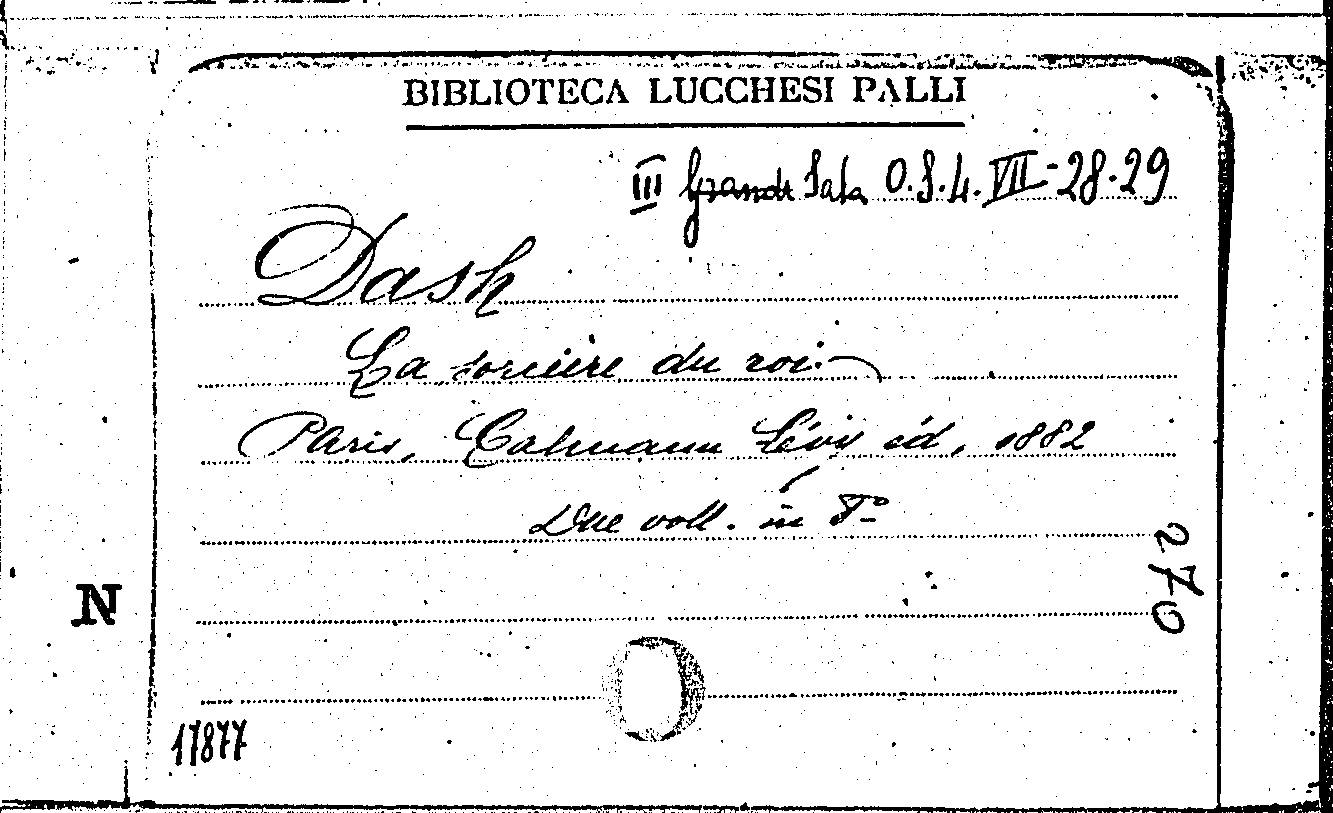 BIBLIOTECA LUCCHESI PALLI
III Grande Sala O.S.4.VII-28-29
Dash
La sorcière du roi.
Paris, Calmann Lévy éd, 1882
Due voll. in 8º
270
N
17877